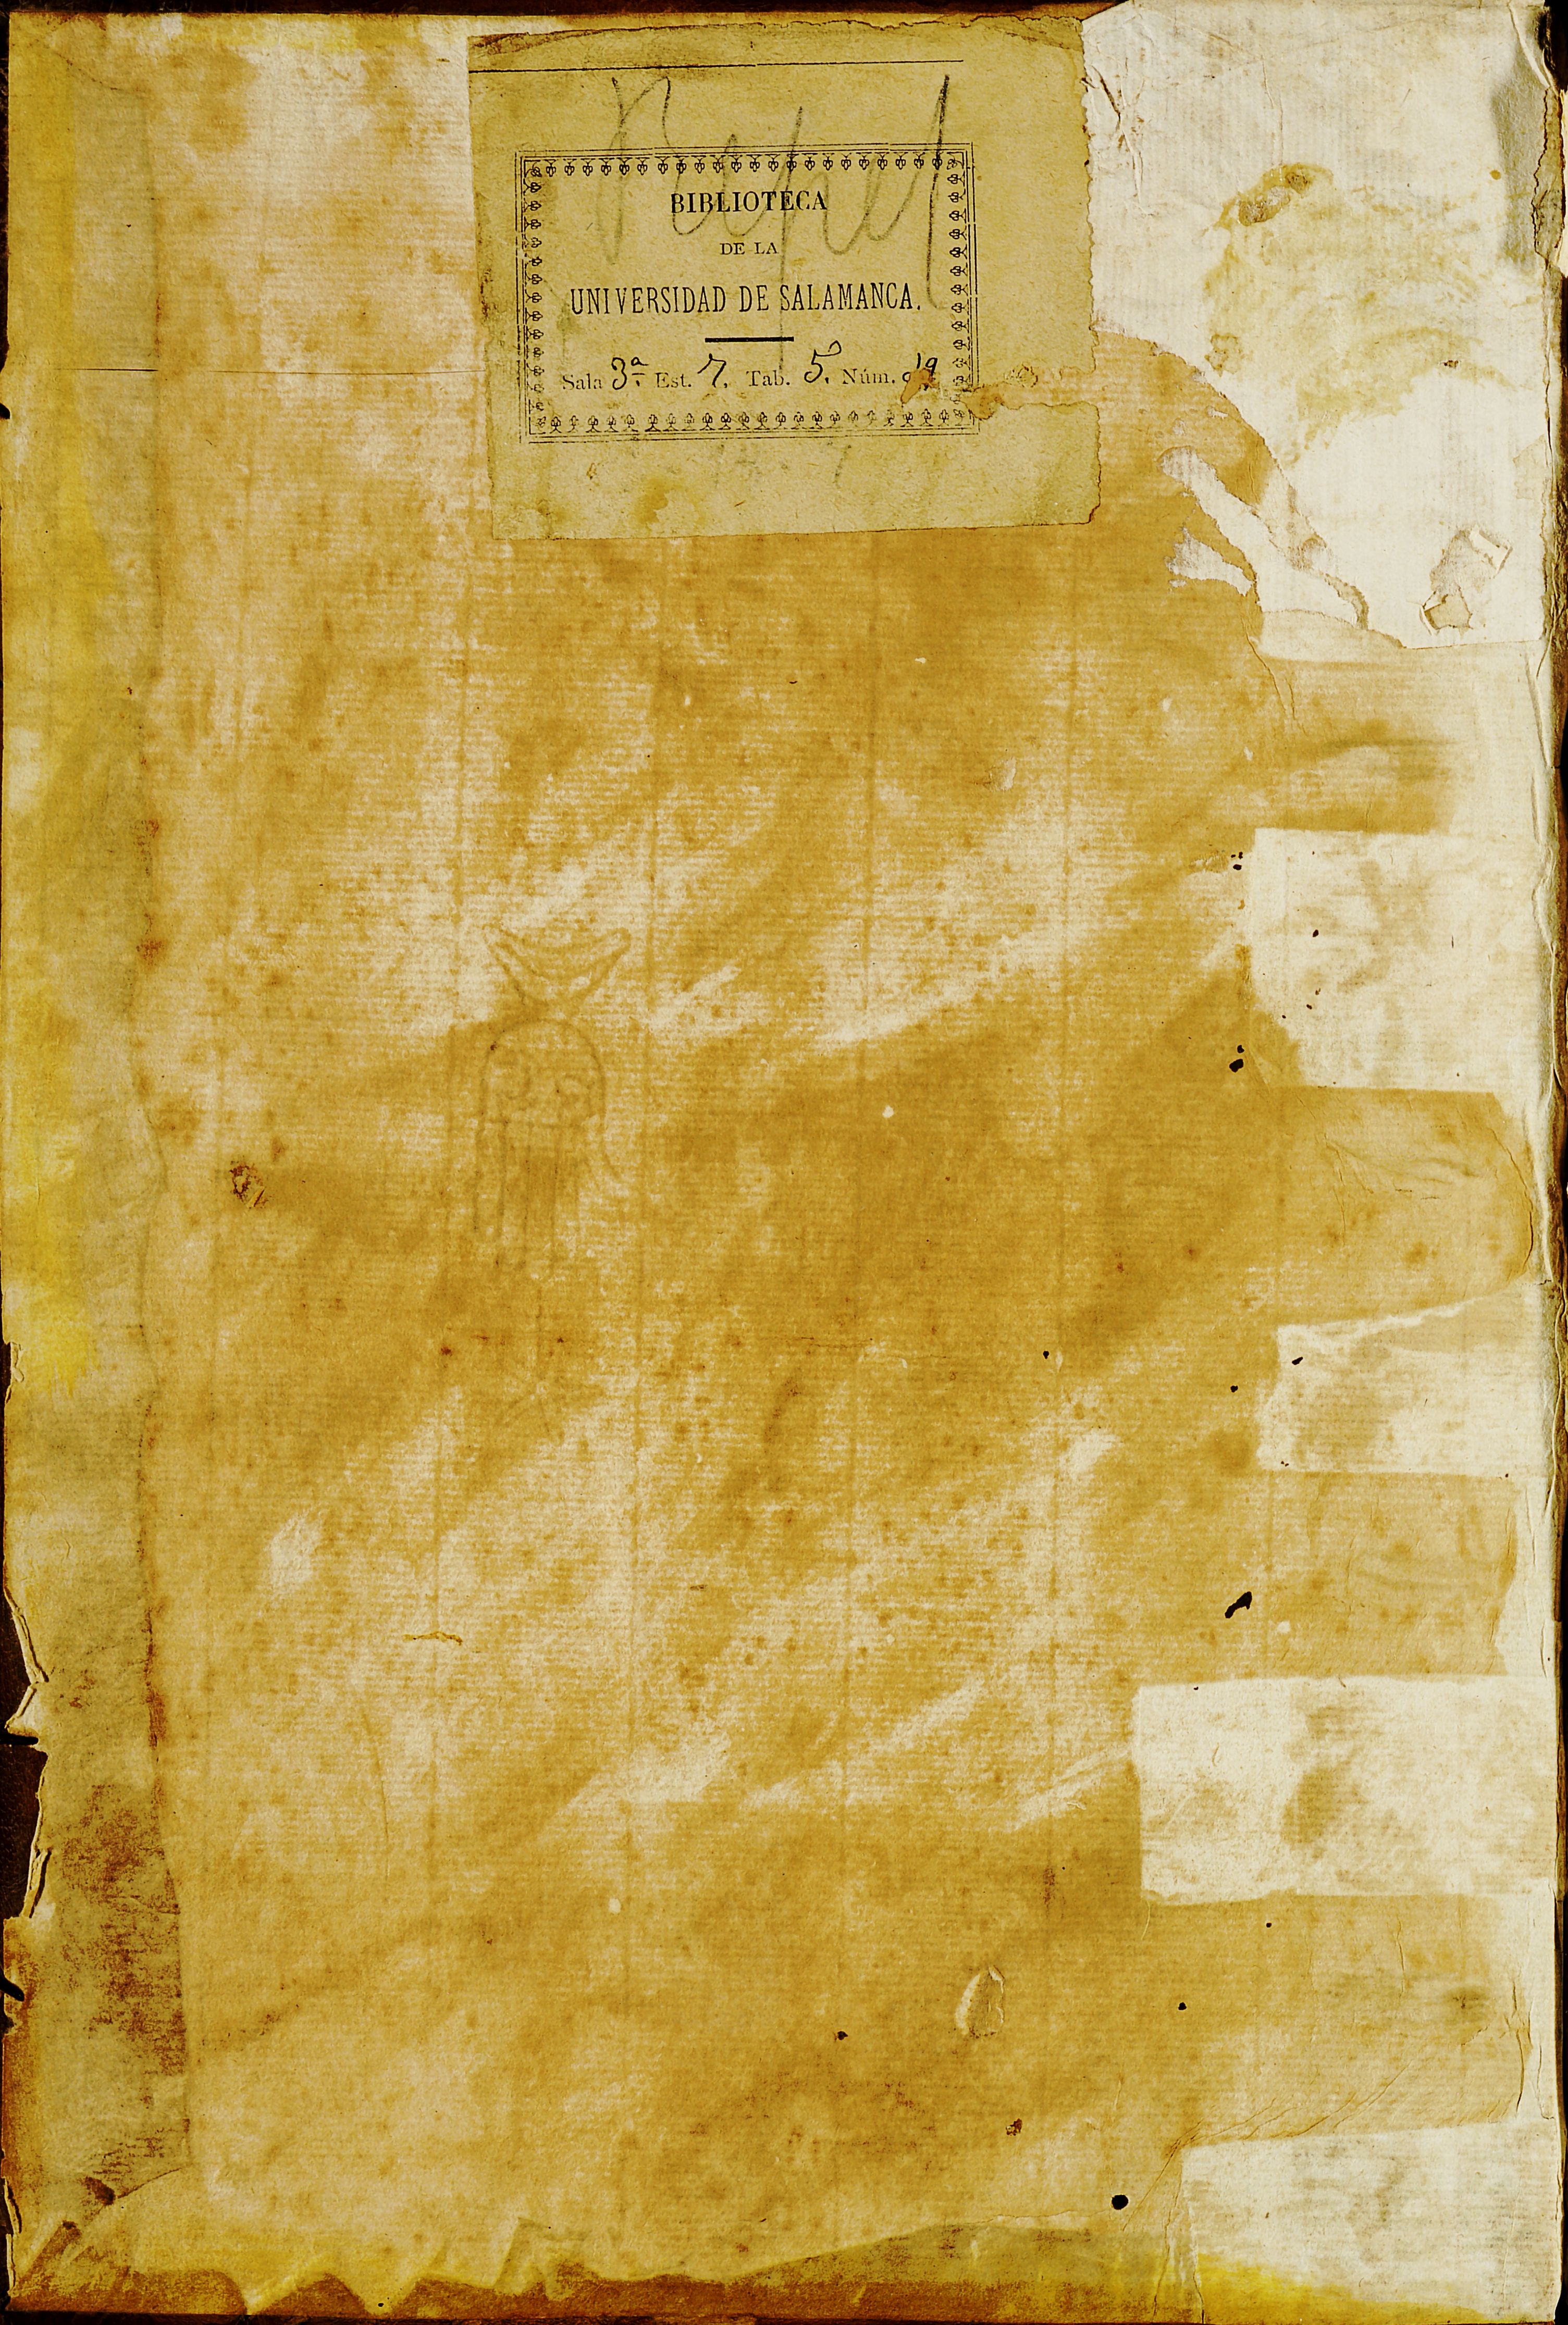 BIBLIOTECA
DE LA
UNIVERSIDAD DE SALAMANCA.
Sala 3ª Est. 7. Tab. 5. Núm. 19